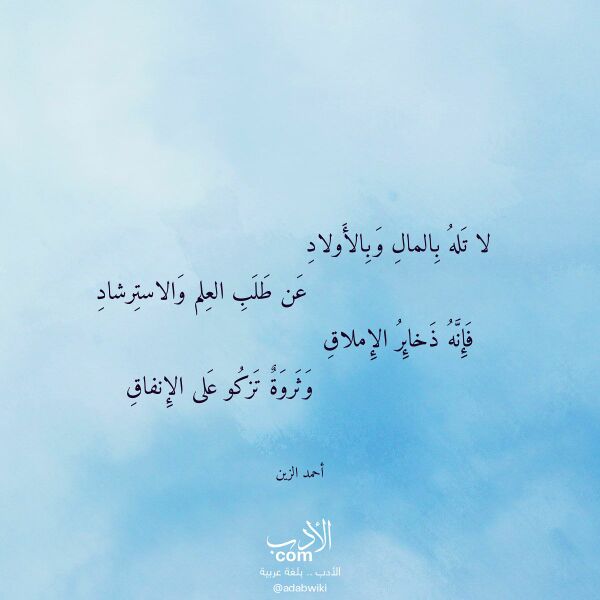 لا تَلهُ بِالمالِ وَبِالأَولادِ
عَن طَلَبِ العِلمِ وَالاستِرشادِ
فَإِنَّهُ ذَخايِرُ الإِملاقِ
وَثَروَةٌ تَزكُو عَلى الإِنفاقِ
أحمد الزين
الأدب
com
الأدب .. بلغة عربية
@adabwiki